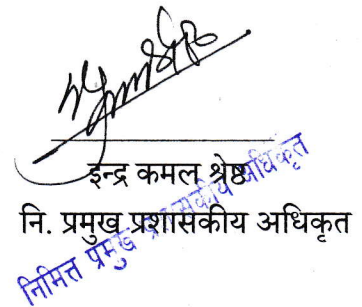 इन्द्र कमल श्रेष्ठ
नि. प्रमुख प्रशासकीय अधिकृत
निमित्त प्रमुख प्रशासकीय अधिकृत